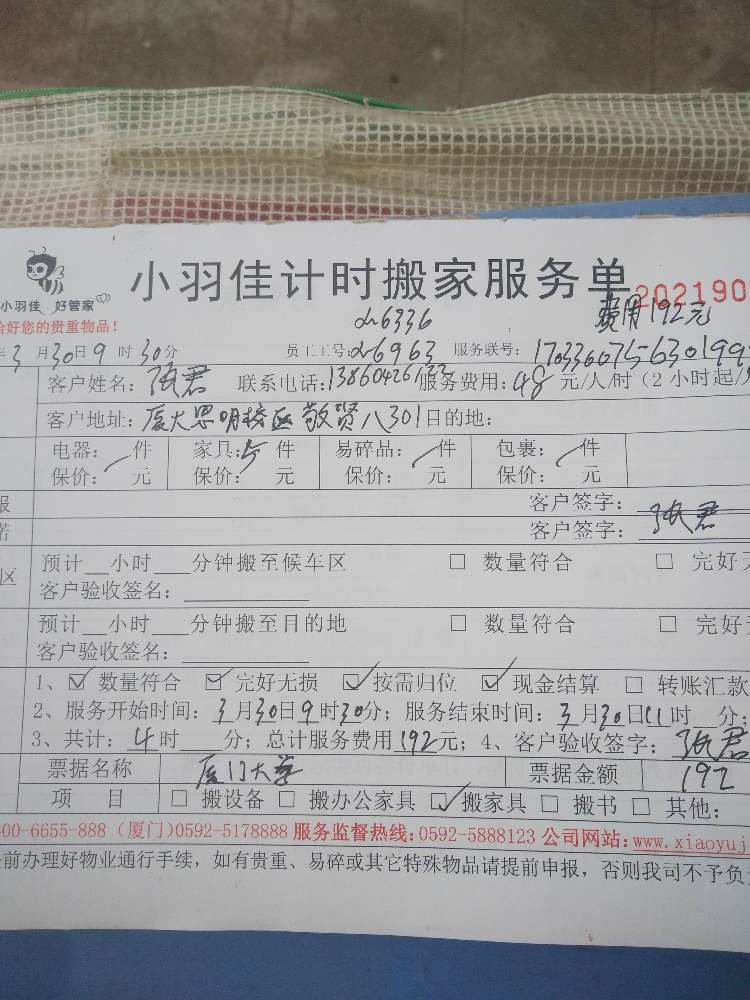 小羽佳 好管家
小羽佳计时搬家服务单 202190
恰好您的贵重物品！
6336 费用192元
3月30日9时30分 员工工号: 6963 服务联号:
客户姓名：张君 联系电话: 服务费用:48元/人/时（2小时起/
客户地址：厦大思明校区敬贤八301目的地：
电器： 件 家具：5件 易碎品： 件 包裹： 件
保价： 元 保价： 元 保价： 元 保价： 元
客户签字：
客户签字：张君
预计 小时 分钟搬至候车区 □ 数量符合 □ 完好
区 客户验收签名：
预计 小时 分钟搬至目的地 □ 数量符合 □ 完好
客户验收签名：
1、☑ 数量符合 ☑ 完好无损 ☑ 按需归位 ☑ 现金结算 □ 转账汇款
2、服务开始时间：3月30日9时30分；服务结束时间：3月30日11时 分；
3、共计：4时 分；总计服务费用192元；4、客户验收签字：张君
票据名称 厦门大学 票据金额 192
项 目 □ 搬设备 □ 搬办公家具 ☑ 搬家具 □ 搬书 □ 其他：
00-6655-888（厦门）0592-5178888 服务监督热线:0592-5888123 公司网站:www.xiaoyuj
前办理好物业通行手续，如有贵重、易碎或其它特殊物品请提前申报，否则我司不予负